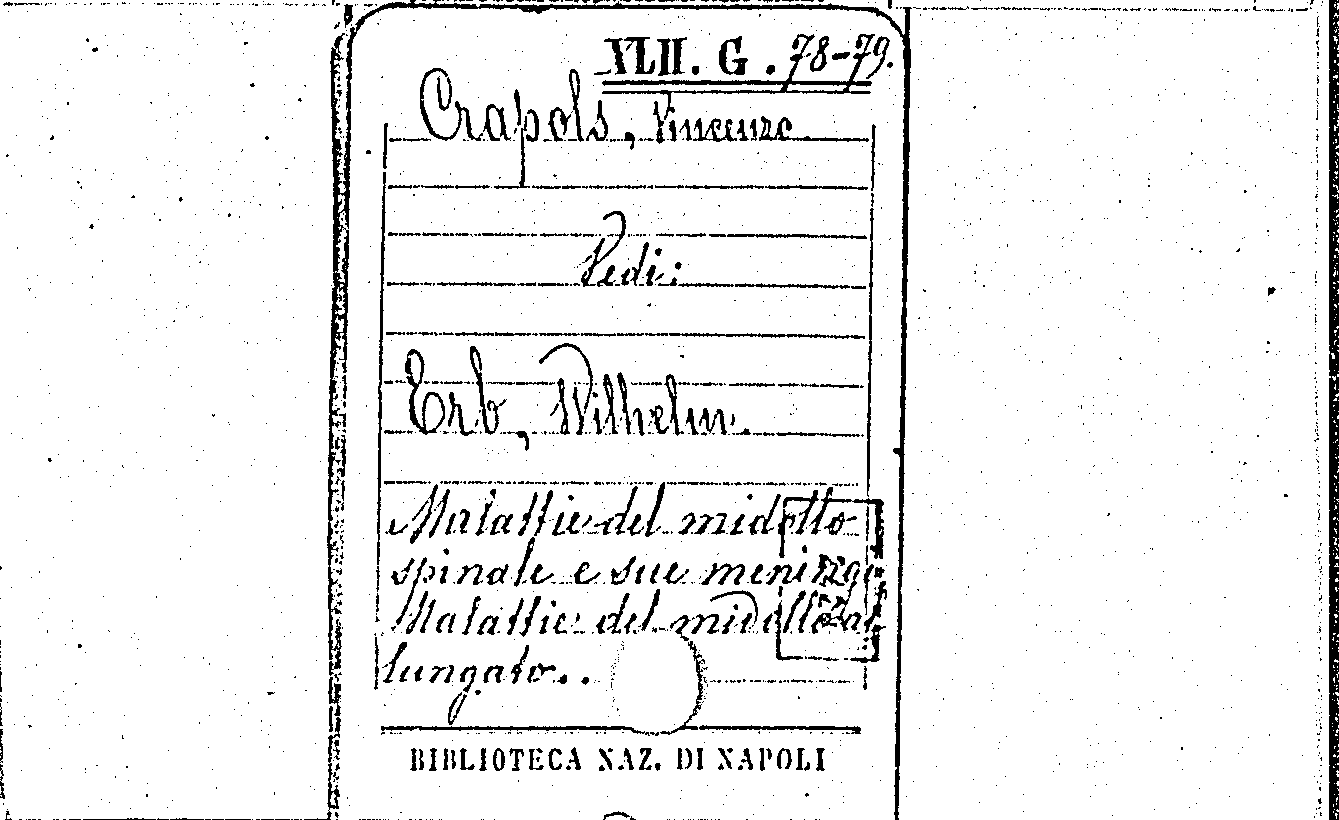 XLII. G. 78-79.
Crapols, Vincenzo
Vedi:
Erb, Wilhelm.
Malattie del midollo
spinale e sue meningi
Malattie del midollo al
lungato..
BIBLIOTECA NAZ. DI NAPOLI